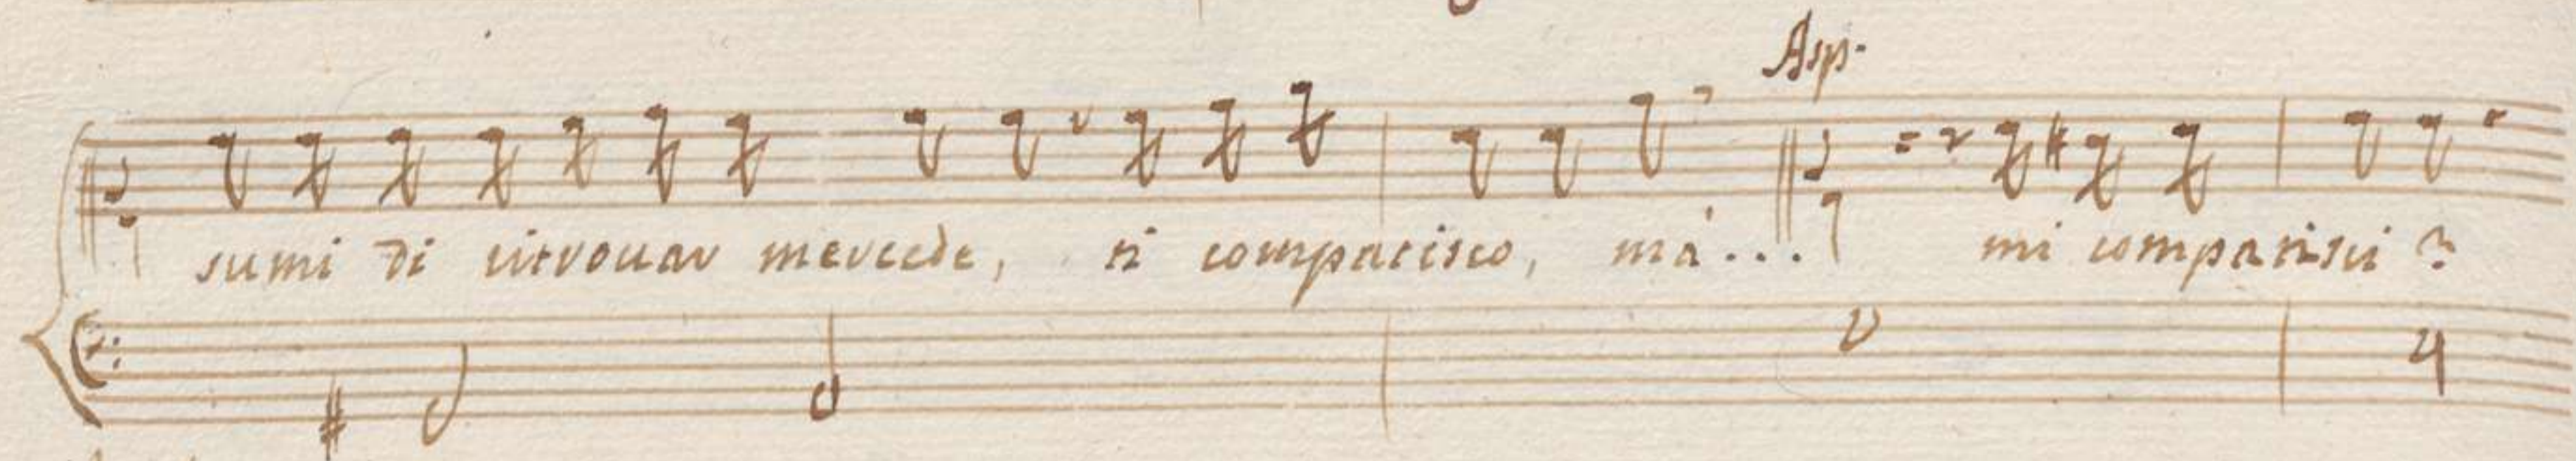 Asp.
sumi di ritrovar mercede, ti compatisco, mà... mi compatisci?